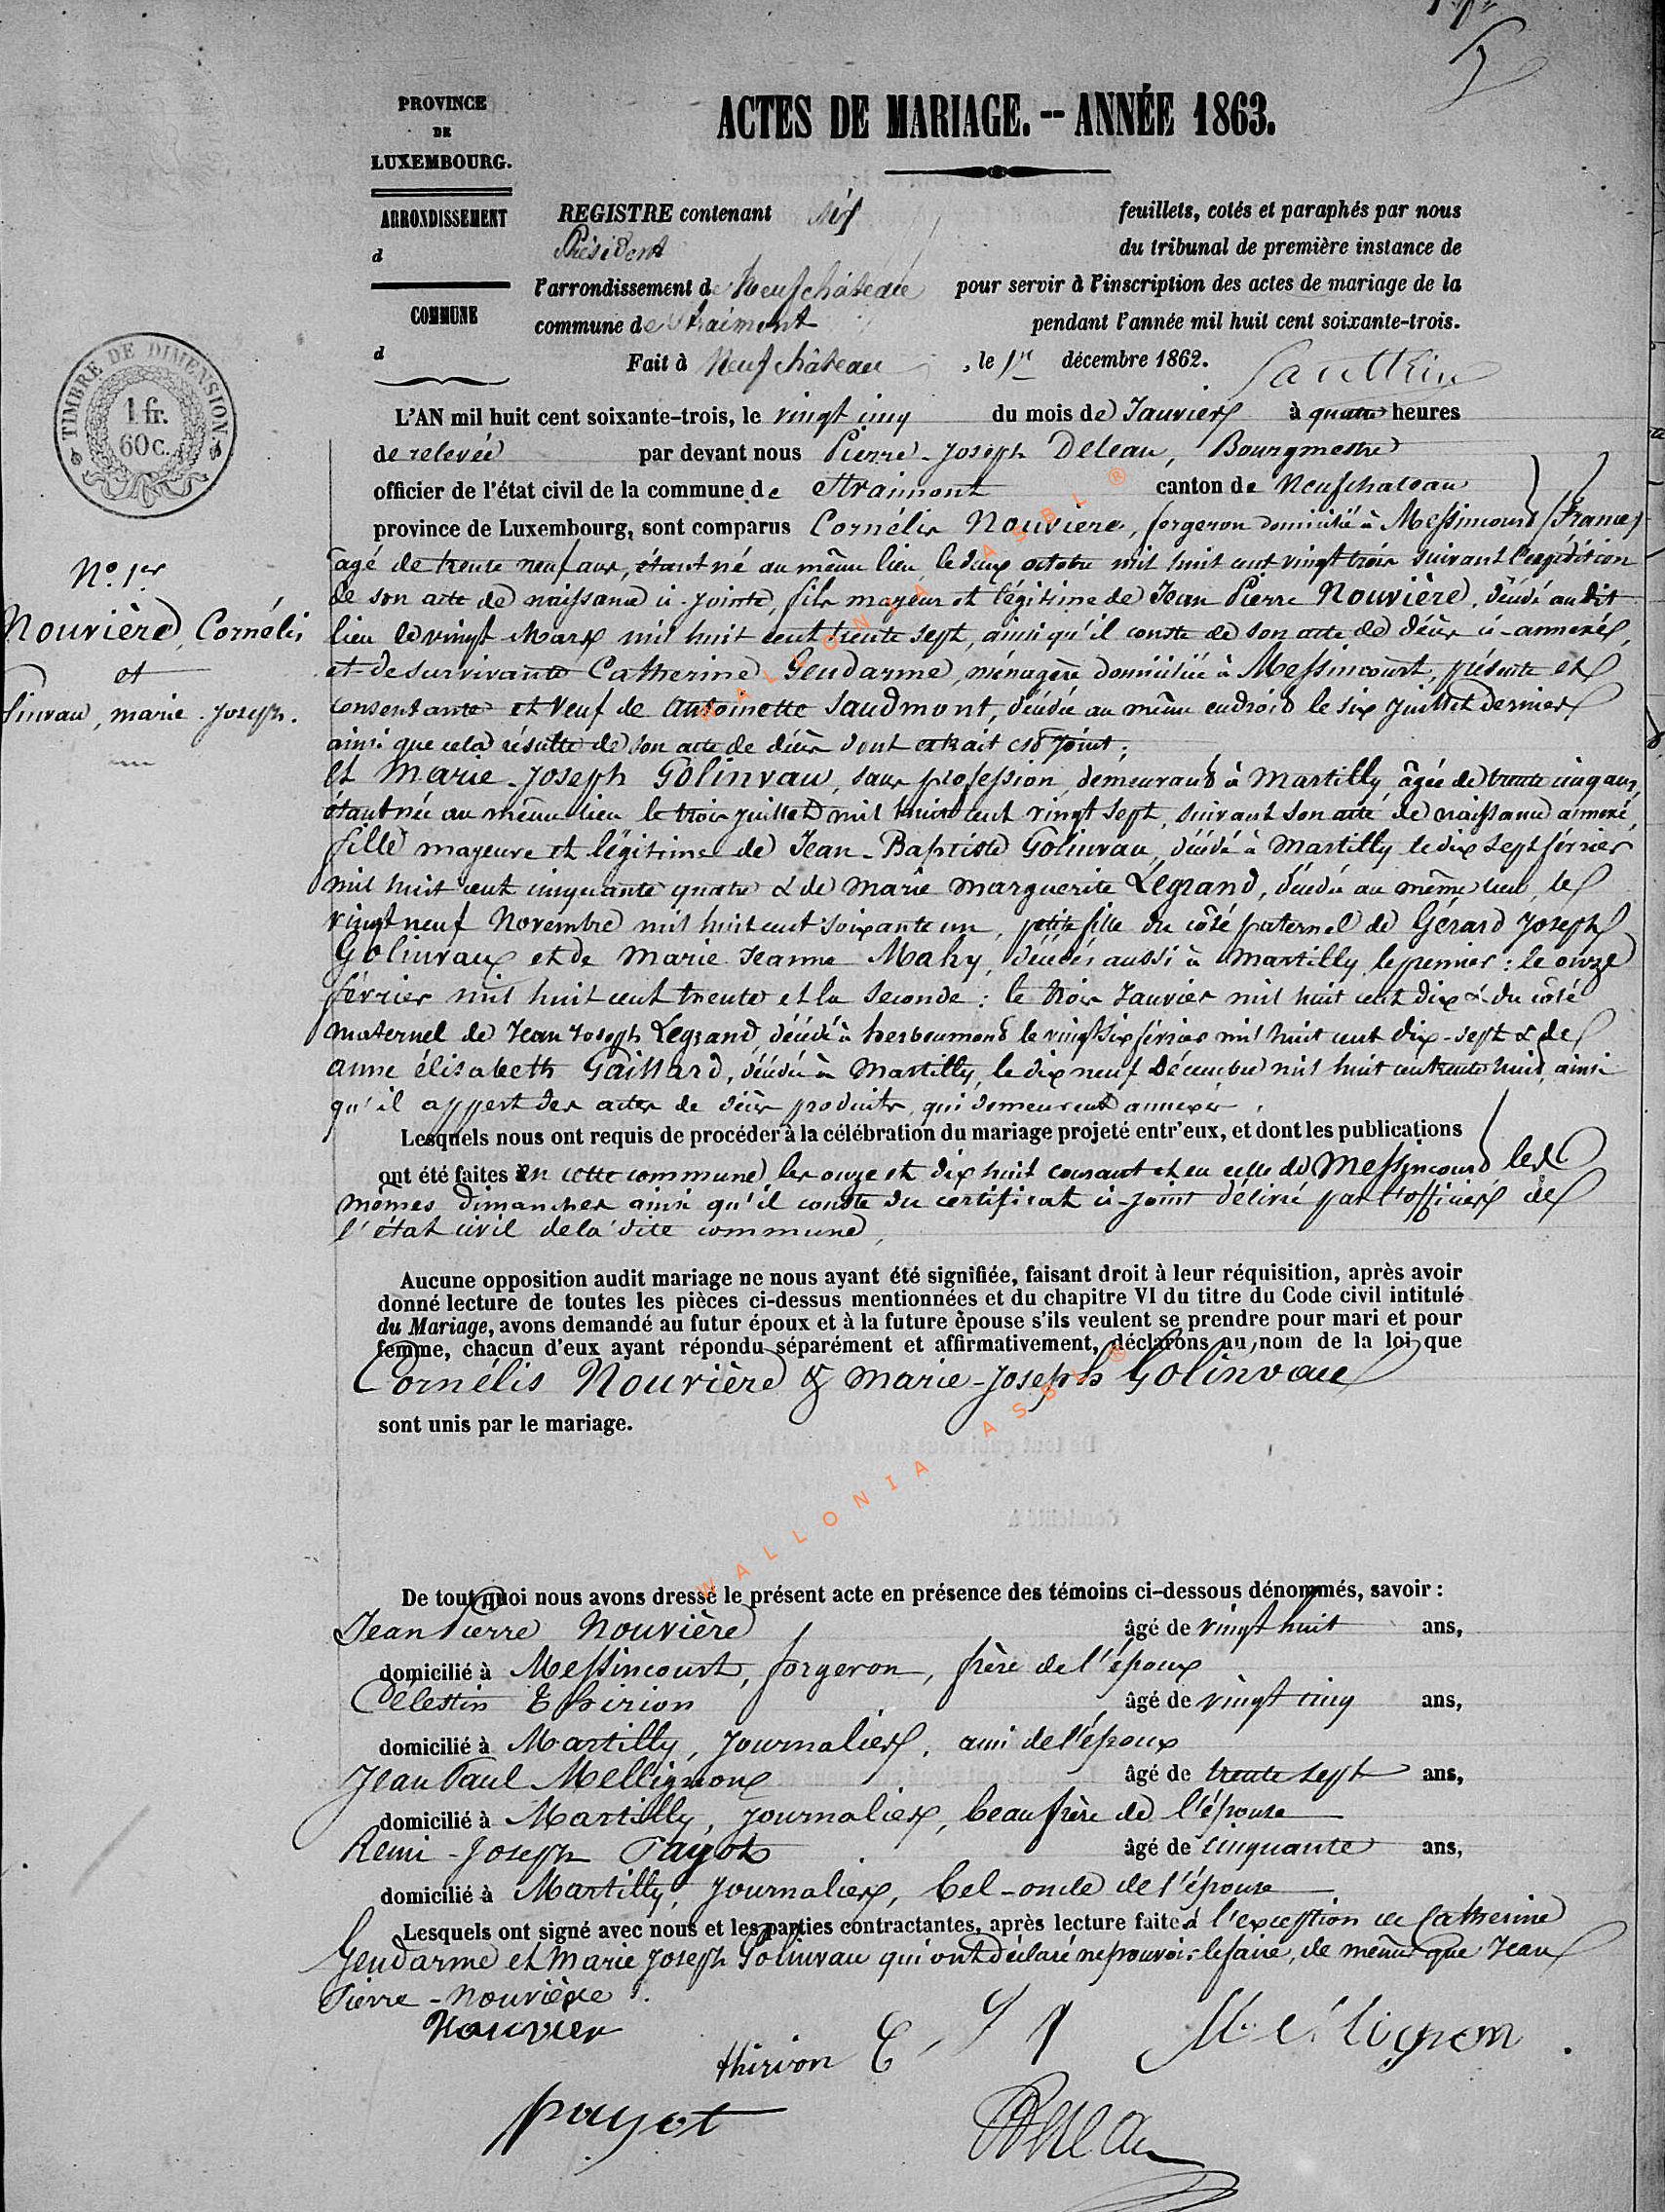 ACTES DE MARIAGE. -- ANNÉE 1863.
PROVINCE
DE
LUXEMBOURG.
ARRONDISSEMENT
d
COMMUNE
d
REGISTRE contenant six feuillets, cotés et paraphés par nous
Président du tribunal de première instance de
l'arrondissement de Neufchâteau pour servir à l'inscription des actes de mariage de la
commune de Straimont pendant l'année mil huit cent soixante-trois.
Fait à Neufchâteau, le 1er décembre 1862.
TIMBRE DE DIMENSION
1 fr.
60 c.
L'AN mil huit cent soixante-trois, le vingt cinq du mois de Janvier à quatre heures
de relevée par devant nous Pierre-Joseph Deleau, Bourgmestre
officier de l'état civil de la commune de Straimont canton de Neufchateau
province de Luxembourg, sont comparus Cornélis Nouvière, forgeron domicilié à Messincourt (France)
âgé de trente neuf ans, étant né au même lieu le deux octobre mil huit cent vingt trois suivant l'expédition
de son acte de naissance ci-jointe, fils majeur et légitime de Jean Pierre Nouvière, décédé au dit
lieu le vingt Mars mil huit cent trente sept, ainsi qu'il conste de son acte de décès ci-annexé,
et de survivante Catherine Gendarme, ménagère domiciliée à Messincourt, présente et
consentante et Veuf de Antoinette Saudmont, décédée au même endroit le six juillet dernier
ainsi que cela résulte de son acte de décès dont extrait est joint;
et Marie-Joseph Golinvau, sans profession, demeurant à Martilly âgée de trente cinq ans,
étant née au même lieu le trois juillet mil huit cent vingt sept, suivant son acte de naissance annexé,
fille majeure et légitime de Jean-Baptiste Golinvau, décédé à Martilly le dix sept février
mil huit cent cinquante quatre & de Marie Marguerite Legrand, décédée au même lieu, le
vingt neuf Novembre mil huit cent soixante un, petite fille du côté paternel de Gérard Joseph
Golinvaux et de Marie Jeanne Mahy, décédés aussi à Martilly, le premier: le onze
février mil huit cent trente et la seconde: le trois Janvier mil huit cent dix & du côté
maternel de Jean Joseph Legrand, décédé à herbeumont le vingt six février mil huit cent dix-sept & de
anne élisabeth Gaillard, décédée à Martilly, le dix neuf Décembre mil huit cent trente huit, ainsi
qu'il appert des actes de décès produits, qui demeurent annexés.
Lesquels nous ont requis de procéder à la célébration du mariage projeté entr'eux, et dont les publications
ont été faites en cette commune les onze et dix huit courant et en celle de Messincourt les
mêmes dimanches ainsi qu'il conste du certificat ci-joint délivré par l'officier de
l'état civil de la dite commune,
N.o 1er
Nouvière, Cornélis
et
linvau, marie-joseph.
Aucune opposition audit mariage ne nous ayant été signifiée, faisant droit à leur réquisition, après avoir
donné lecture de toutes les pièces ci-dessus mentionnées et du chapitre VI du titre du Code civil intitulé
du Mariage, avons demandé au futur époux et à la future épouse s'ils veulent se prendre pour mari et pour
femme, chacun d'eux ayant répondu séparément et affirmativement, déclarons au nom de la loi que
Cornélis Nouvière & Marie-Joseph Golinvau
sont unis par le mariage.
WALLONIA ASBL ®
WALLONIA ASBL ®
De tout quoi nous avons dressé le présent acte en présence des témoins ci-dessous dénommés, savoir :
Jean Pierre Nouvière âgé de vingt huit ans,
domicilié à Messincourt, forgeron, frère de l'époux
Célestin Thirion âgé de vingt cinq ans,
domicilié à Martilly, Journalier, ami de l'époux
Jean Paul Mellignon âgé de trente sept ans,
domicilié à Martilly, journalier, beau frère de l'épouse
Remi-Joseph Payot âgé de cinquante ans,
domicilié à Martilly, Journalier, bel-oncle de l'épouse
Lesquels ont signé avec nous et les parties contractantes, après lecture faite à l'exception de Catherine
Gendarme et Marie Joseph Golinvau qui ont déclaré ne pouvoir le faire, de même que Jean
Pierre-Nouvière.
Nouvier
thirion C
Mélignon
payot
Deleau